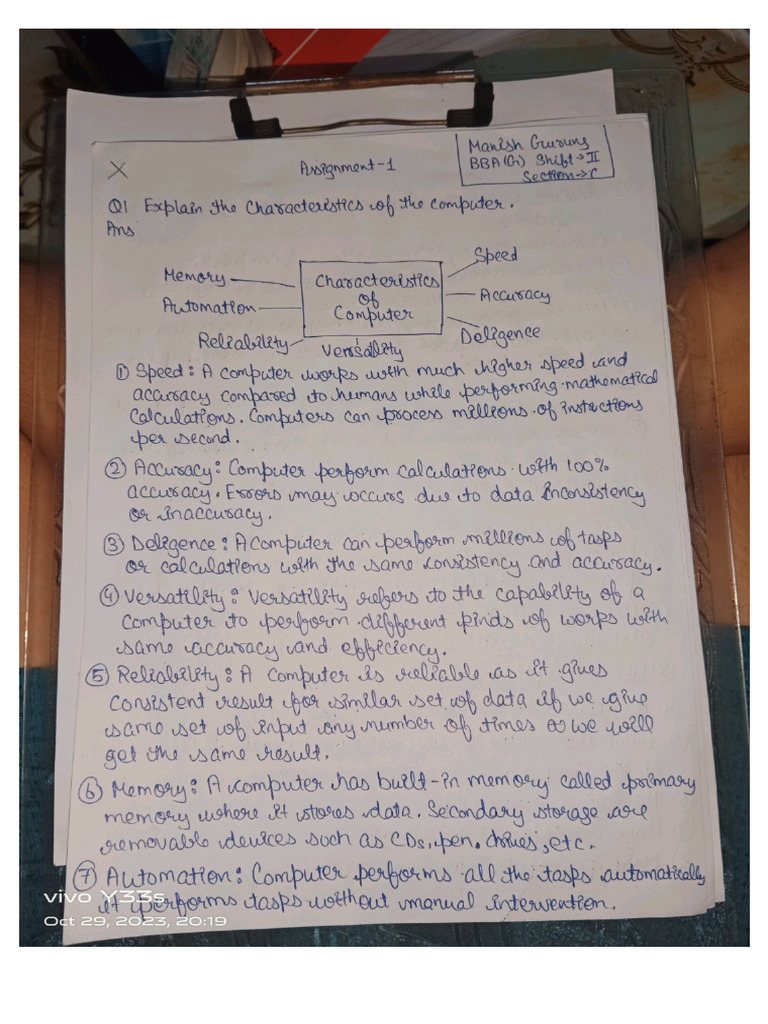 Assignment-1
Manish Gurung
BBA(G) Shift→II
Section→C
Q1 Explain the characteristics of the computer.
Ans
Memory
Automation
Reliability
Characteristics
of
Computer
Versatility
Speed
Accuracy
Deligence
① Speed: A computer works with much higher speed and
accuracy compared to humans while performing mathematical
calculations. Computers can process millions of instructions
per second.
② Accuracy: Computer perform calculations with 100%
accuracy. Errors may occurs due to data inconsistency
or inaccuracy.
③ Deligence: A computer can perform millions of tasks
or calculations with the same consistency and accuracy.
④ Versatility: Versatility refers to the capability of a
computer to perform different kinds of works with
same accuracy and efficiency.
⑤ Reliability: A computer is reliable as it gives
consistent result for similar set of data if we give
same set of input any number of times we will
get the same result.
⑥ Memory: A computer has built-in memory called primary
memory where it stores data. Secondary storage are
removable devices such as CDs, pen, drives, etc.
⑦ Automation: Computer performs all the tasks automatically
it performs tasks without manual intervention.
vivo Y33s
Oct 29, 2023, 20:19